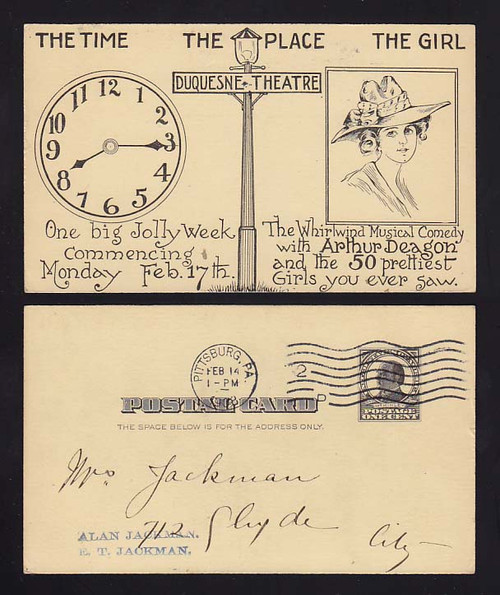 THE TIME THE PLACE THE GIRL
DUQUESNE THEATRE
12
1
2
3
4
5
6
7
8
9
10
11
One big Jolly Week
Commencing
Monday Feb. 17th.
The Whirlwind Musical Comedy
with Arthur Deagon
and the 50 prettiest
Girls you ever saw.
PITTSBURG, PA.
FEB 14
1-PM
1908
2
POSTAGE
ONE CENT
POSTAL CARD
THE SPACE BELOW IS FOR THE ADDRESS ONLY.
Mrs Jackman
712 Clyde
City
ALAN JACKMAN.
E. T. JACKMAN.